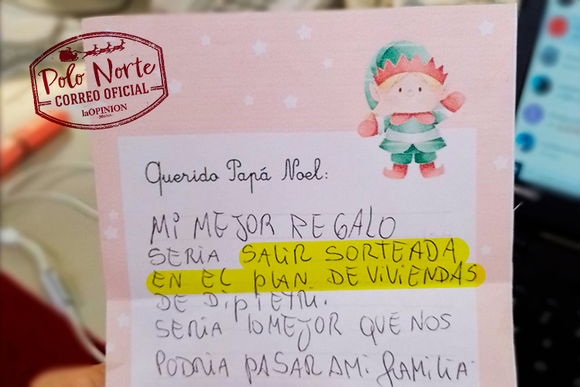 Polo Norte
CORREO OFICIAL
laOPINION
Querido Papá Noel:
MI MEJOR REGALO
SERIA SALIR SORTEADA
EN EL PLAN DE VIVIENDAS
DE DIPIETRI.
SERIA LO MEJOR QUE NOS
PODRIA PASAR A MI FAMILIA